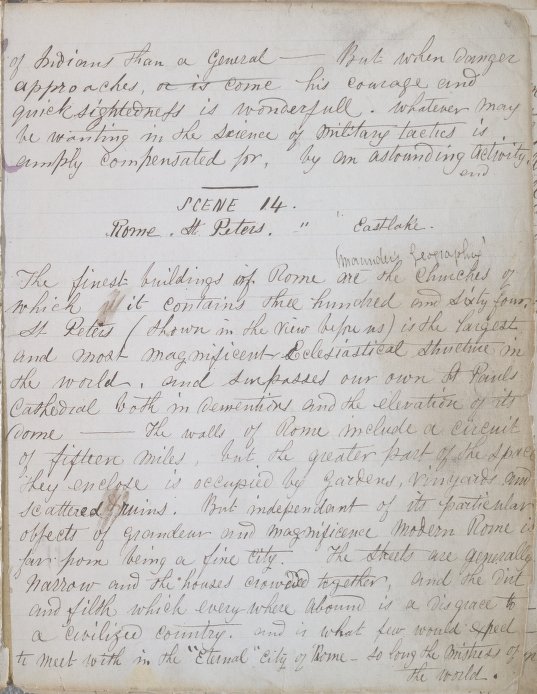 of Indians than a General — But when danger
approaches, or is come his courage and
quick sightedness is wonderfull. whatever may
be wanting in the science of military tactics is
amply compensated for, by an astounding activity.
end
SCENE 14.
Rome. St Peters. " " Eastlake.
(maunders Geography)
The finest buildings of Rome are the Churches of
which it contains three hundred and sixty four.
St Peters (shown in the view before us) is the largest
and most magnificent Eclesiastical structure in
the world. and surpasses our own St Pauls
Cathedral both in demontions and the elevation of its
dome — The walls of Rome include a circuit
of fifteen miles, but the greater part of the space
they enclose is occupied by gardens, vinyards and
scattered ruins. But independant of its particular
objects of grandeur and magnificence modern Rome is
far from being a fine City. The streets are generally
narrow and the houses crowded together, and the dirt
and filth which every where abound is a disgrace to
a civilized country. and is what few would expect
to meet with in the "Eternal" City of Rome - so long the mistress of
the world.